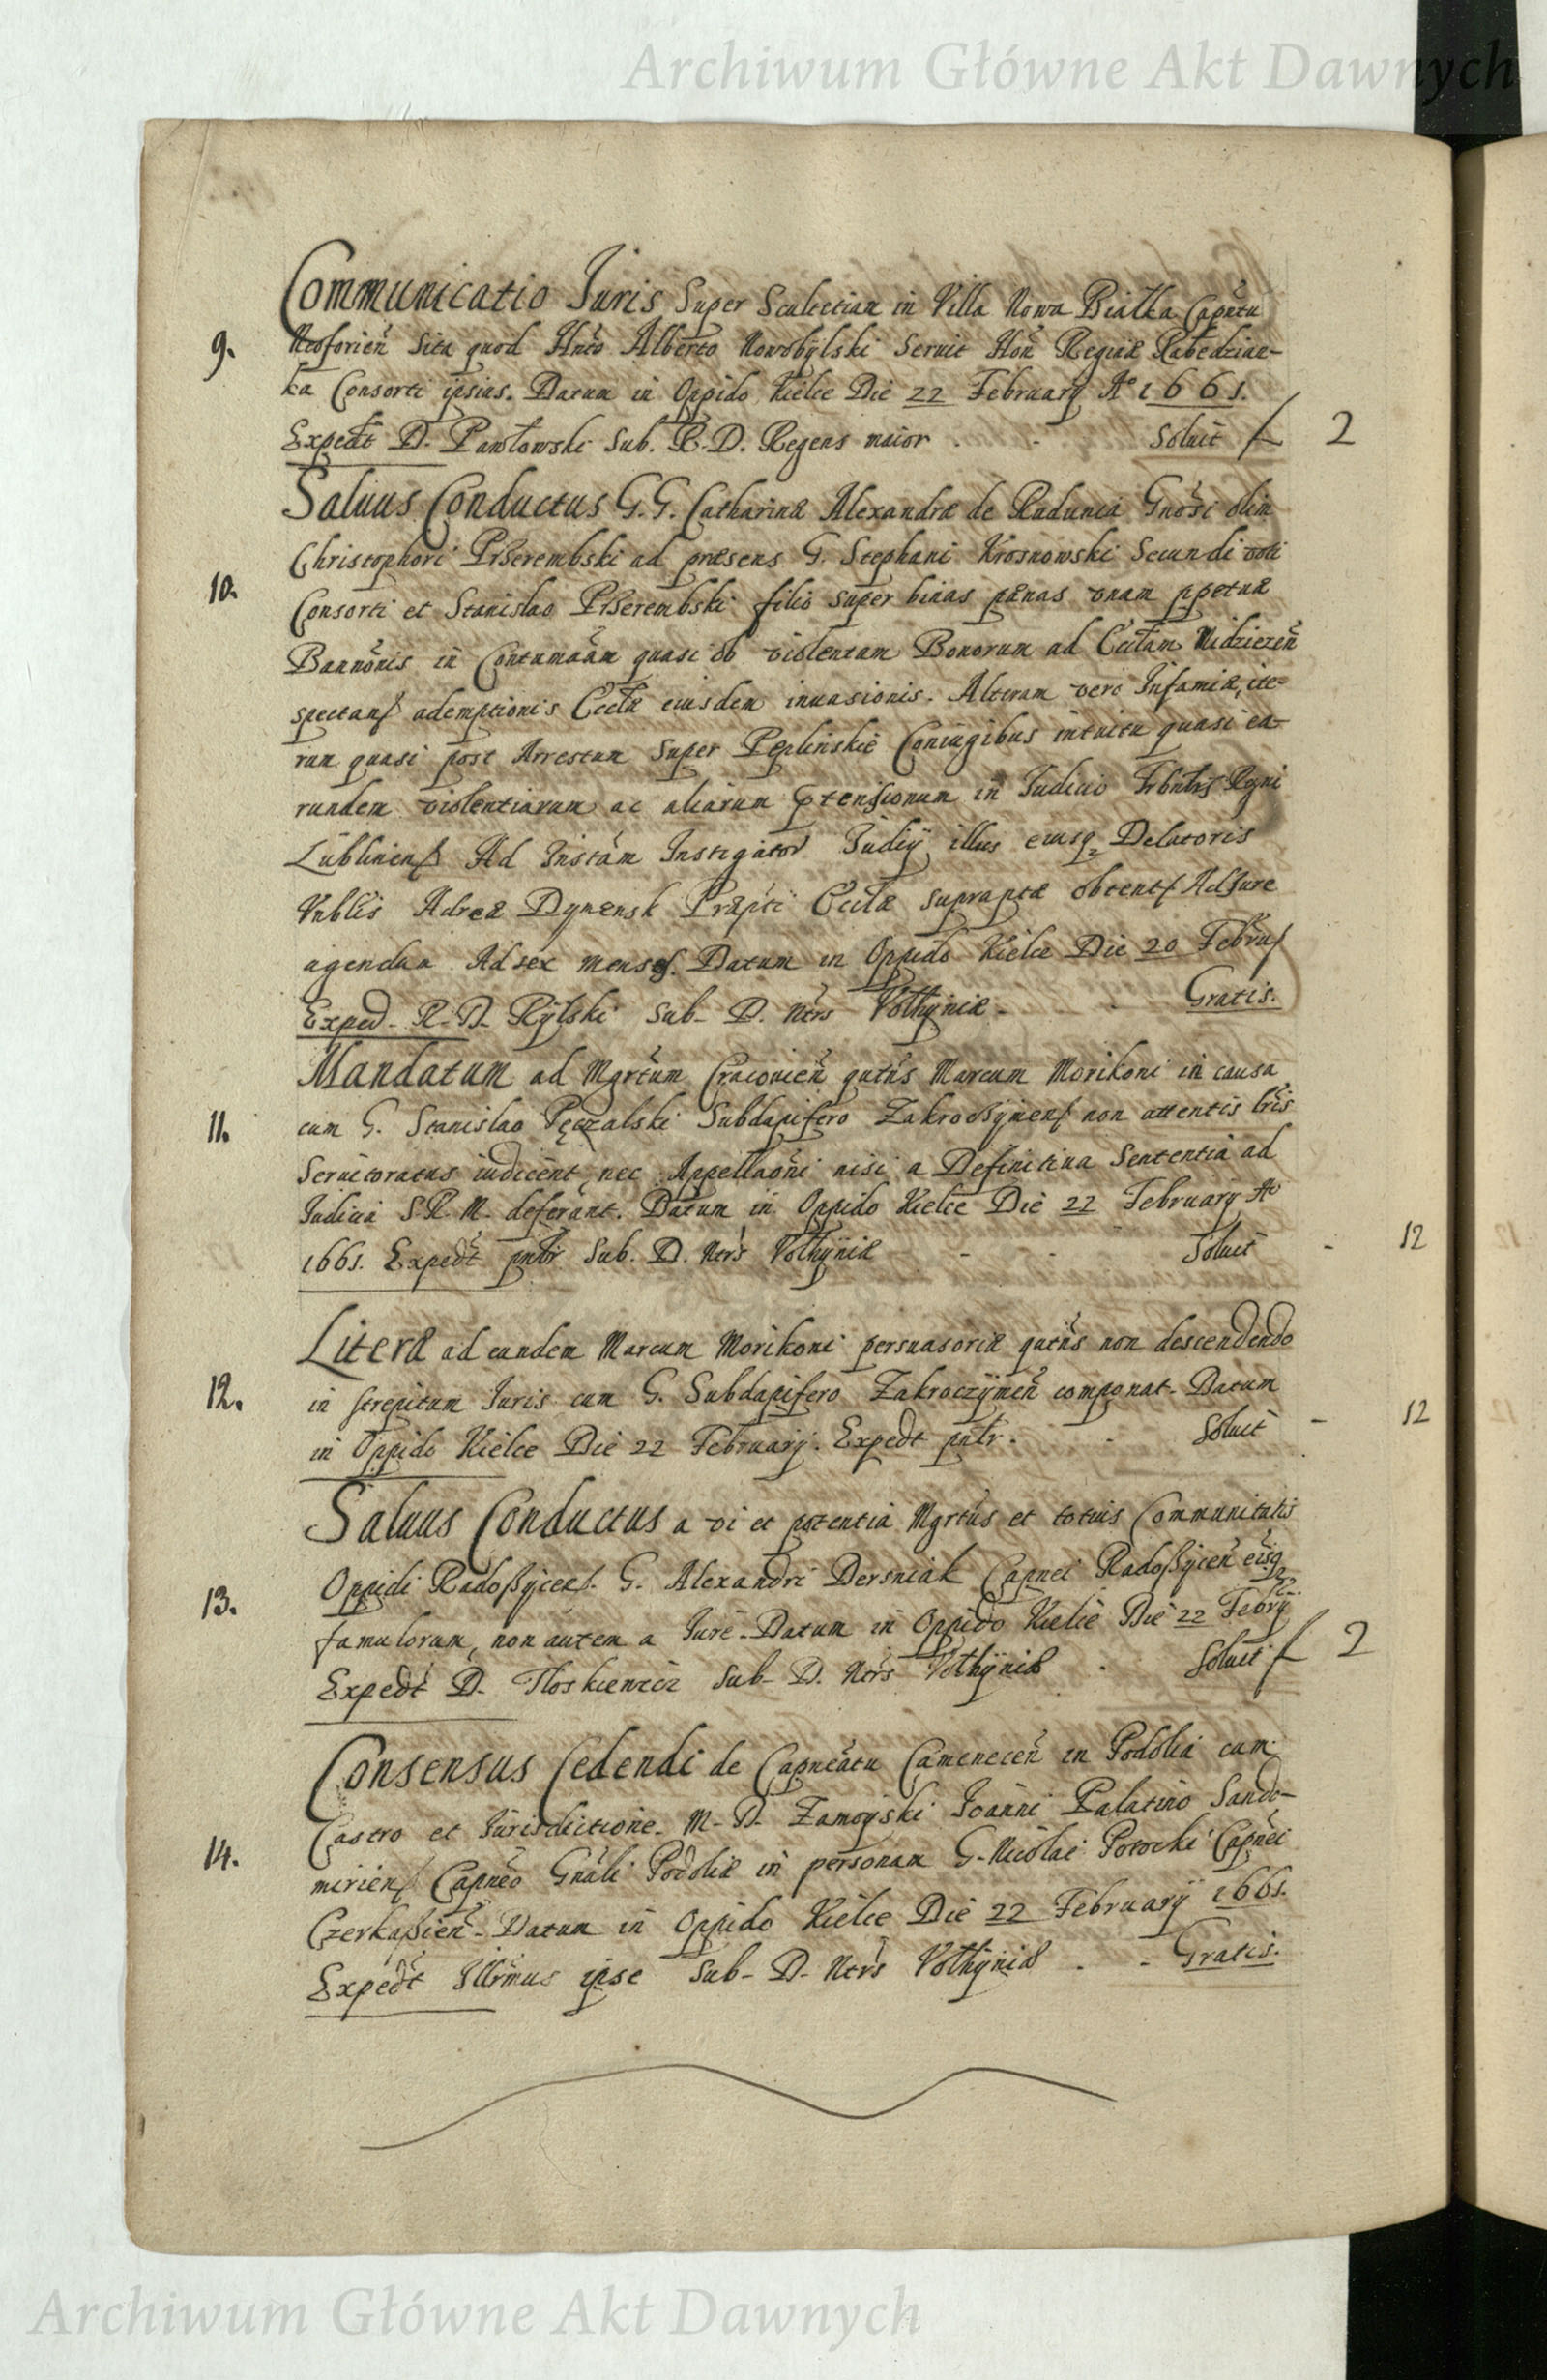 Archiwum Główne Akt Dawnych
Communicatio Juris Super Scultetiam in Villa Nowa Białka Capnẽtu
9. Neoforień Sita quod Hnẽo Alberto Nowobÿlski Seruit Hoñ Reginæ
ka Consorti ipsius. Datum in Oppido Kielce Die 22 Februarÿ Aº 1661.
Expedt D. Pawłowski Sub. R. D. Regens maior . - Soluit f 2
Saluus Conductus G.G. Catharinæ Alexandræ de Radunia Gnõsi olim
Christophori Prserembski ad præsens G. Stephani Krosnowski Secundi voti
10. Consorti et Stanislao Prserembski filio super binas pænas vnam ppetuæ
Bannõnis in Contumaam quasi ob violentam Bonorum ad Ecclam
spectanß ademptionis Ecclæ eiusdem inuasionis. Alteram vero Infamiæ, ite-
rum quasi post Arrestum Super Peplinskie Coniugibus intuitu quasi ea-
rundem violentiarum ac aliarum ptensionum in Judicio Trbnlis Rgni
Lublinenß Ad Instam Instigator Judiÿ illius eiusq Delatoris
Vnblis Adreæ Præpti Ecclæ supraptæ obtentß Ad Jure
agendum Ad sex menses. Datum in Oppido Kielce Die 20 Febru
Exped. R. D. Rÿlski Sub- D. Nrs Vołhÿniæ - Gratis.
Mandatum ad Mgrtum Cracouień qutñs Marcum Morikoni in causa
11. cum G. Stanislao Pęczalski Subdapifero Zakrocsÿmenß non attentis lris
Seruitoratus iudicent, nec Appellaoni nisi a Definitiua Sententia ad
Judicia S. R. M. deferant. Datum in Oppido Kielce Die 22 Februarÿ Aº
1661. Expedt pntr Sub. D. Nrs Vołhÿniæ - - Soluit - 12
Literæ ad eundem Marcum Morikoni persuasoriæ qutñs non descendendo
12. in strepitum Juris cum G. Subdapifero Zakroczÿmeñ componat. Datum
in Oppido Kielce Die 22 Februarÿ. Expedt pntr. - Soluit - 12
Saluus Conductus a vi et potentia Mgrtus et totius Communitatis
13. Oppidi G. Alexandri Dersniak Capnei Radoßÿceñ eiusq
famulorum, non autem a Jure. Datum in Oppido Kielce Die 22 Febrÿ
Expedt D. Tloskiewicz Sub- D. Nrs Vołhÿniæ . Soluit f 2
Consensus Cedendi de Capneatu Cameneceñ in Podolia cum
Castro et Jurisdictione. M. D. Zamoÿski Joanni Palatino Sando-
14. mirienß Capneo Gnali Podoliæ in personam G. Nicolai Potocki Capnei
Czerkaßień. Datum in Oppido Kielce Die 22 Februarÿ 1661.
Expedt Illrmus ipse Sub- D. Nrs Vołhÿniæ . - Gratis.
Archiwum Główne Akt Dawnych